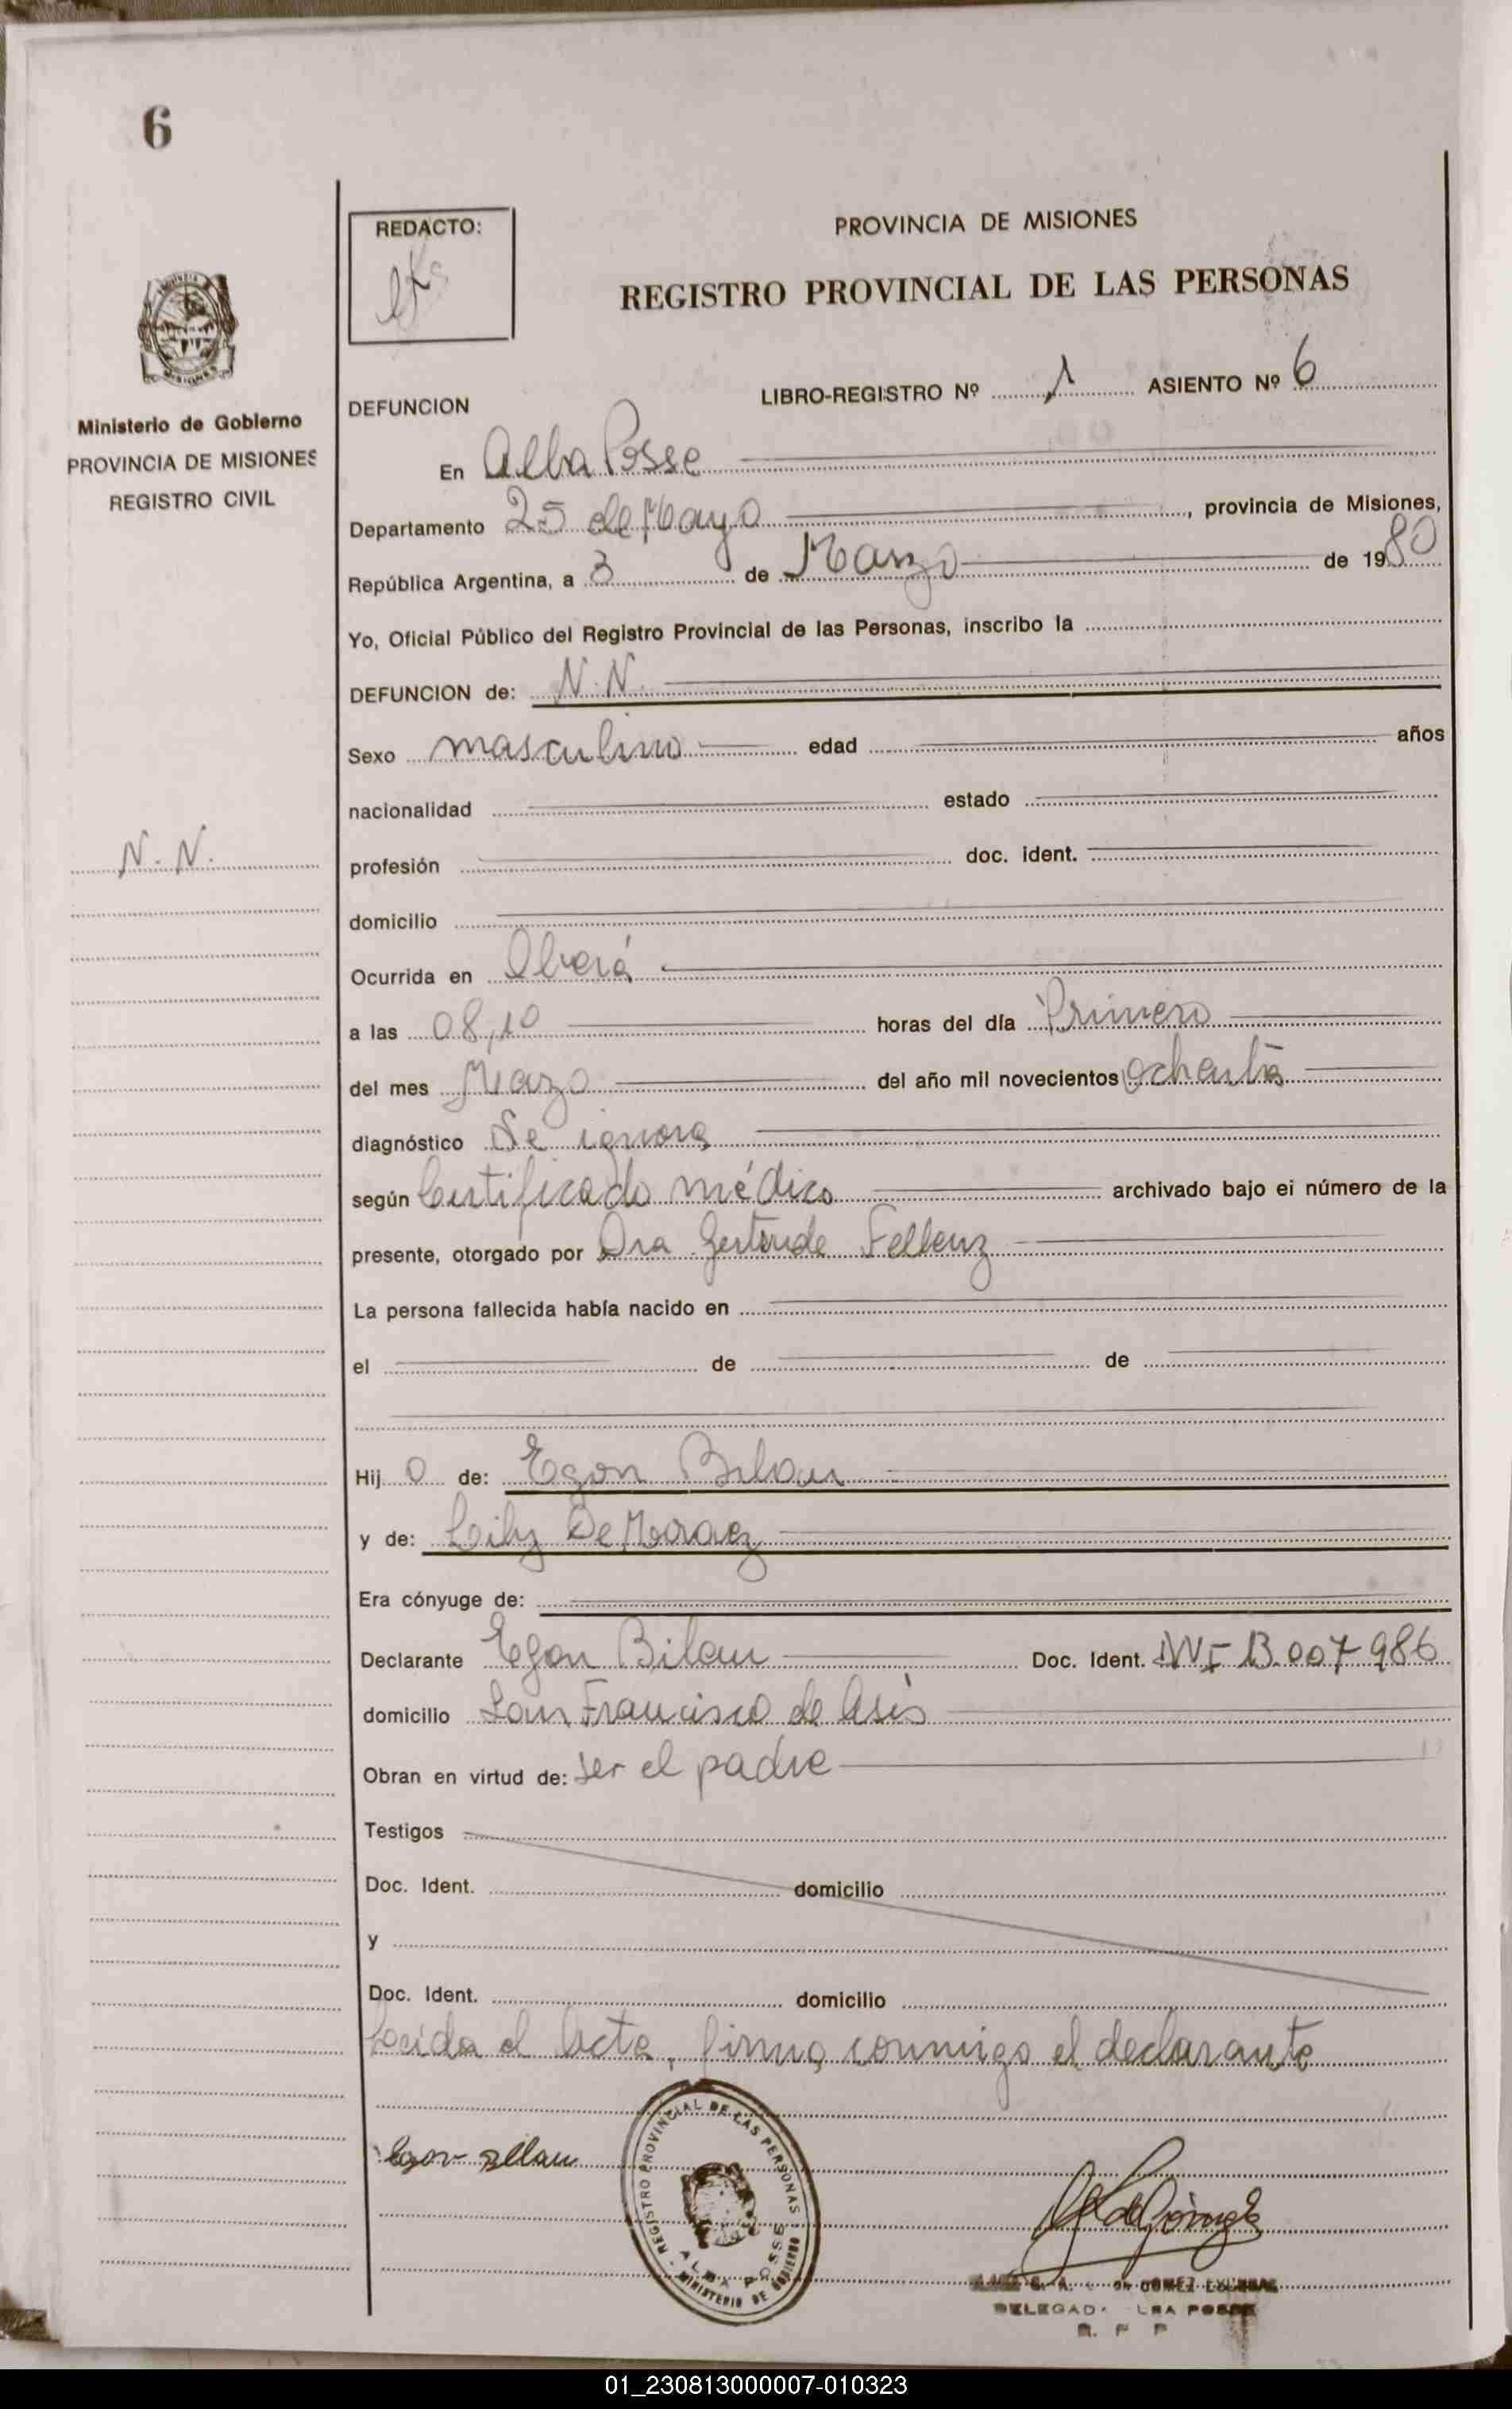 6
REDACTO:
PROVINCIA DE MISIONES
REGISTRO PROVINCIAL DE LAS PERSONAS
Ministerio de Gobierno
PROVINCIA DE MISIONES
REGISTRO CIVIL
LIBRO-REGISTRO Nº 1 ASIENTO Nº 6
DEFUNCION
En Alba Posse
Departamento 25 de Mayo, provincia de Misiones,
República Argentina, a 3 de Marzo de 1980
Yo, Oficial Público del Registro Provincial de las Personas, inscribo la
DEFUNCION de: N.N.
Sexo masculino edad años
nacionalidad estado
N. N.
profesión doc. ident.
domicilio
Ocurrida en Oberá
a las 08,10 horas del día Primero
del mes Marzo del año mil novecientos ochenta
diagnóstico Se ignora
según Certificado médico archivado bajo el número de la
presente, otorgado por Dra Gertrude Fellenz
La persona fallecida había nacido en
el de de
Hij o de: Egon Bilau
y de: De Moraez
Era cónyuge de:
Declarante Egon Bilau Doc. Ident. DNI 13.007.986
domicilio San Francisco de Asís
Obran en virtud de: ser el padre
Testigos
Doc. Ident. domicilio
y
Doc. Ident. domicilio
Leida el Acta, firma conmigo el declarante
Egon Bilau
REGISTRO PROVINCIAL DE LAS PERSONAS
ALBA POSSE
MINISTERIO DE GOBIERNO
DE GOMEZ
DELEGAD. LBA POSSE
R. P P
01_230813000007-010323